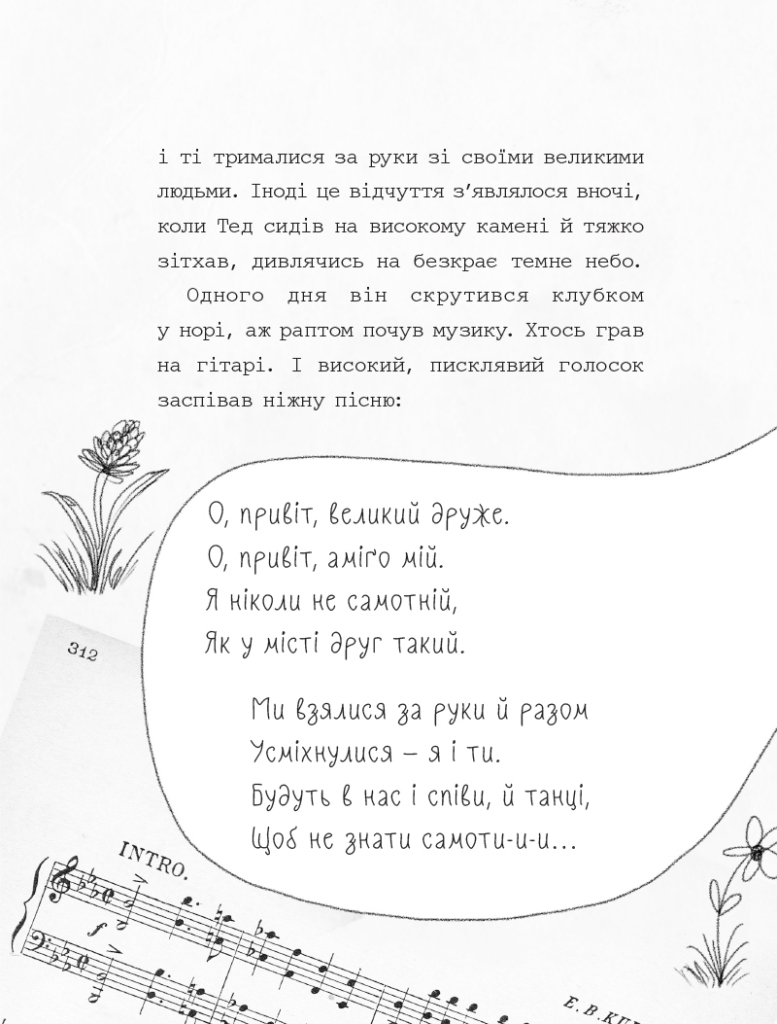 і ті трималися за руки зі своїми великими
людьми. Іноді це відчуття з’являлося вночі,
коли Тед сидів на високому камені й тяжко
зітхав, дивлячись на безкрає темне небо.
Одного дня він скрутився клубком
у норі, аж раптом почув музику. Хтось грав
на гітарі. І високий, писклявий голосок
заспівав ніжну пісню:
О, привіт, великий друже.
О, привіт, аміґо мій.
Я ніколи не самотній,
Як у місті друг такий.
Ми взялися за руки й разом
Усміхнулися – я і ти.
Будуть в нас і співи, й танці,
Щоб не знати самоти-и-и...
312
INTRO.
f
E.B.